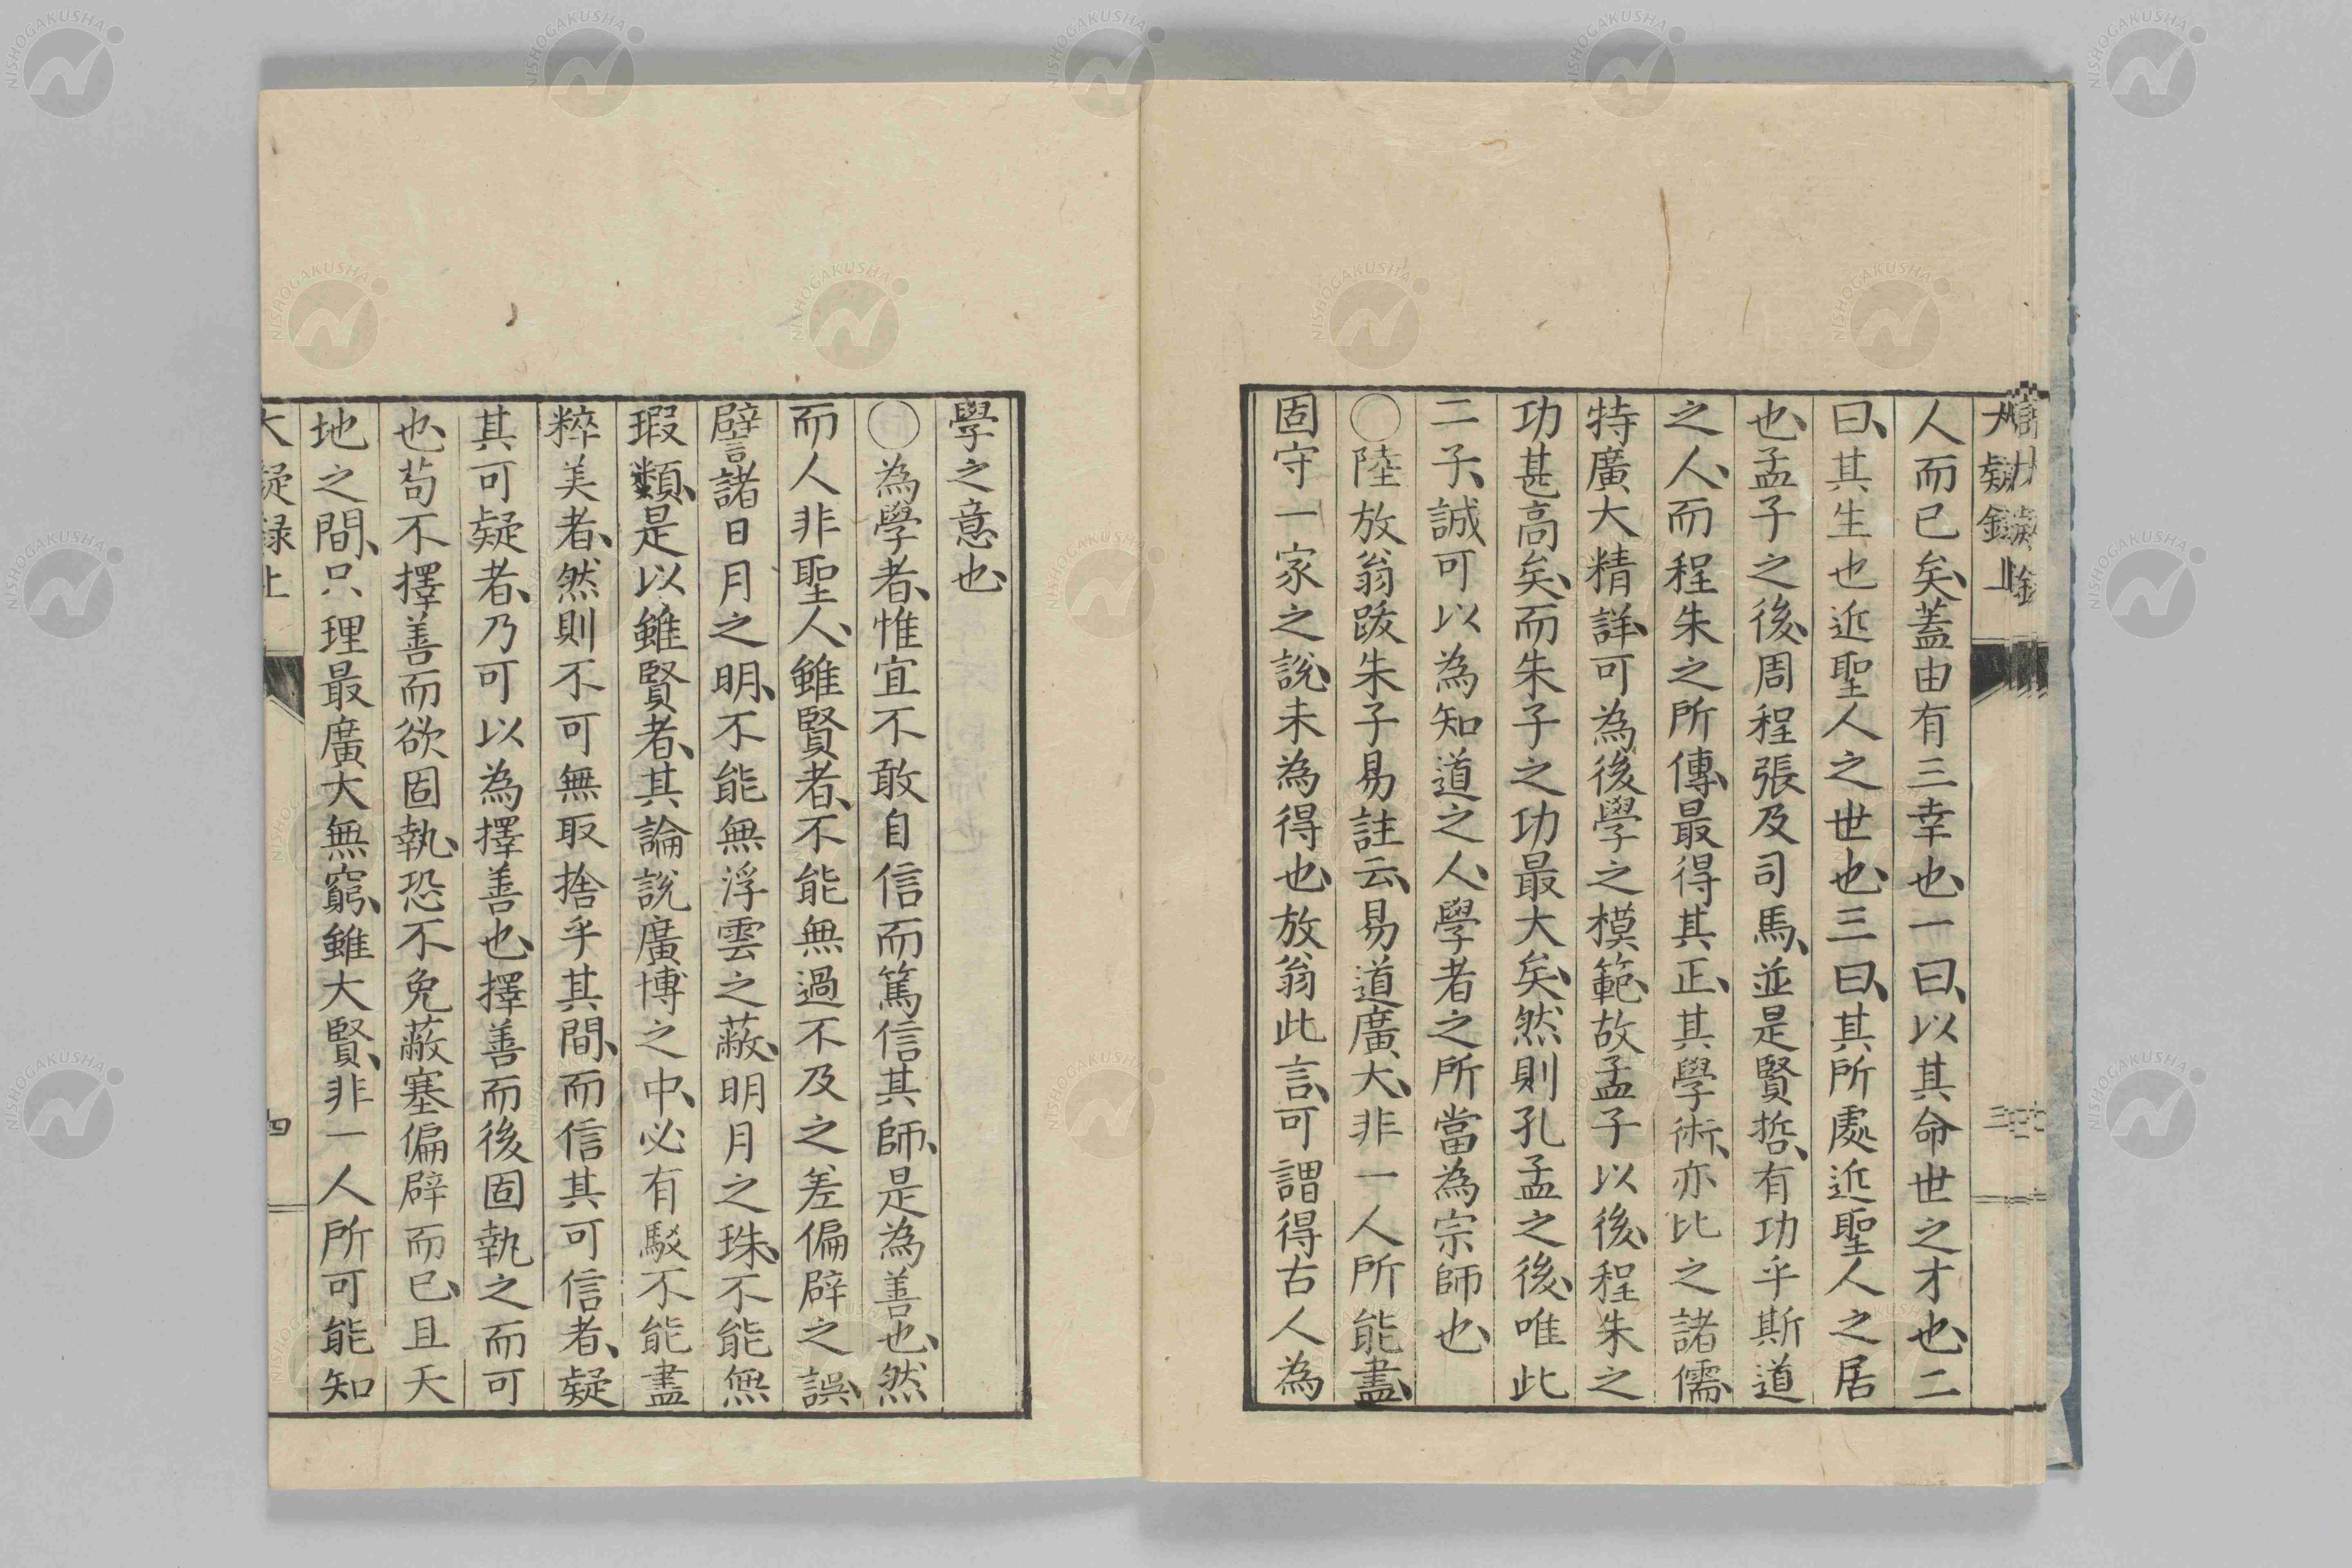 大疑錄上
三
人而已矣、蓋由有三幸也、一曰、以其命世之才也、二
曰、其生也近聖人之世也、三曰、其所處近聖人之居
也、孟子之後、周程張及司馬、並是賢哲、有功乎斯道
之人、而程朱之所傳、最得其正、其學術、亦比之諸儒、
特廣大精詳、可為後學之模範、故孟子以後、程朱之
功甚高矣、而朱子之功最大矣、然則孔孟之後、唯此
二子、誠可以為知道之人、學者之所當為宗師也、
〇陸放翁跋朱子易註云、易道廣大、非一人所能盡、
固守一家之說、未為得也、放翁此言、可謂得古人為
學之意也、
〇為學者、惟宜不敢自信而篤信其師、是為善也、然
而人非聖人、雖賢者、不能無過不及之差偏辟之誤、
譬諸日月之明、不能無浮雲之蔽、明月之珠、不能無
瑕纇、是以雖賢者、其論說廣博之中、必有駁不能盡
粹美者、然則不可無取捨乎其間、而信其可信者、疑
其可疑者、乃可以為擇善也、擇善而後固執之而可
也、苟不擇善而欲固執、恐不免蔽塞偏辟而已、且天
地之間、只理最廣大無窮、雖大賢、非一人所可能知
大疑錄上
四
NISHOGAKUSHA